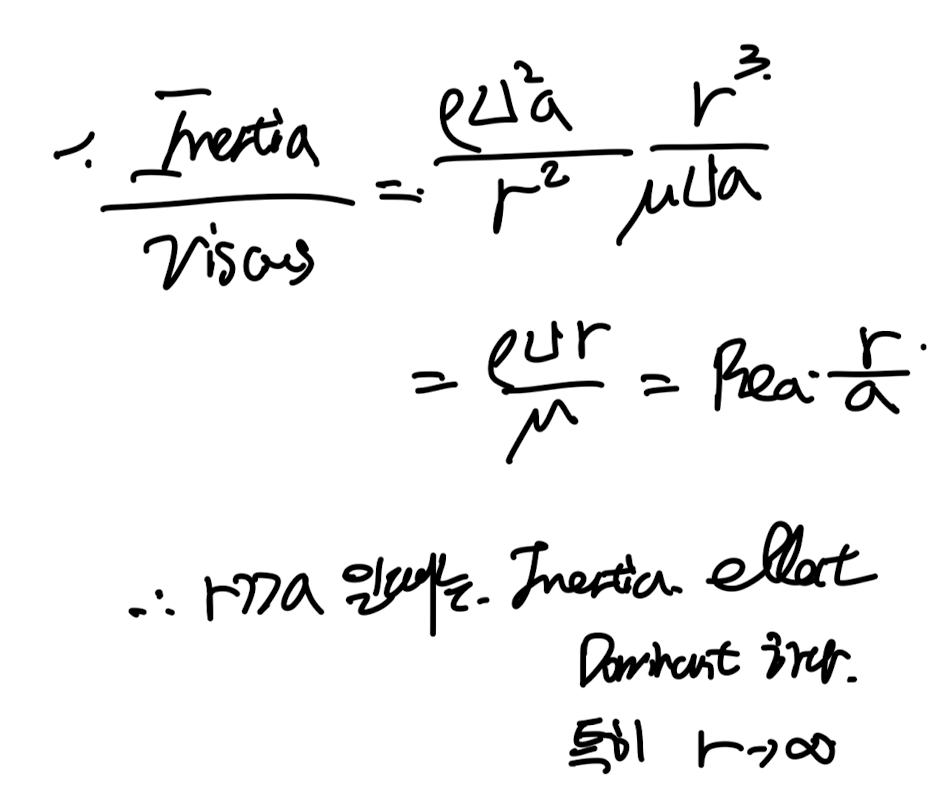 ∴ Inertia/Viscous = ρU²a/r² r³/μUa
= ρUr/μ = Rea · r/a
∴ r>>a 일때는. Inertia effect
Dominant 하다.
특히 r→∞